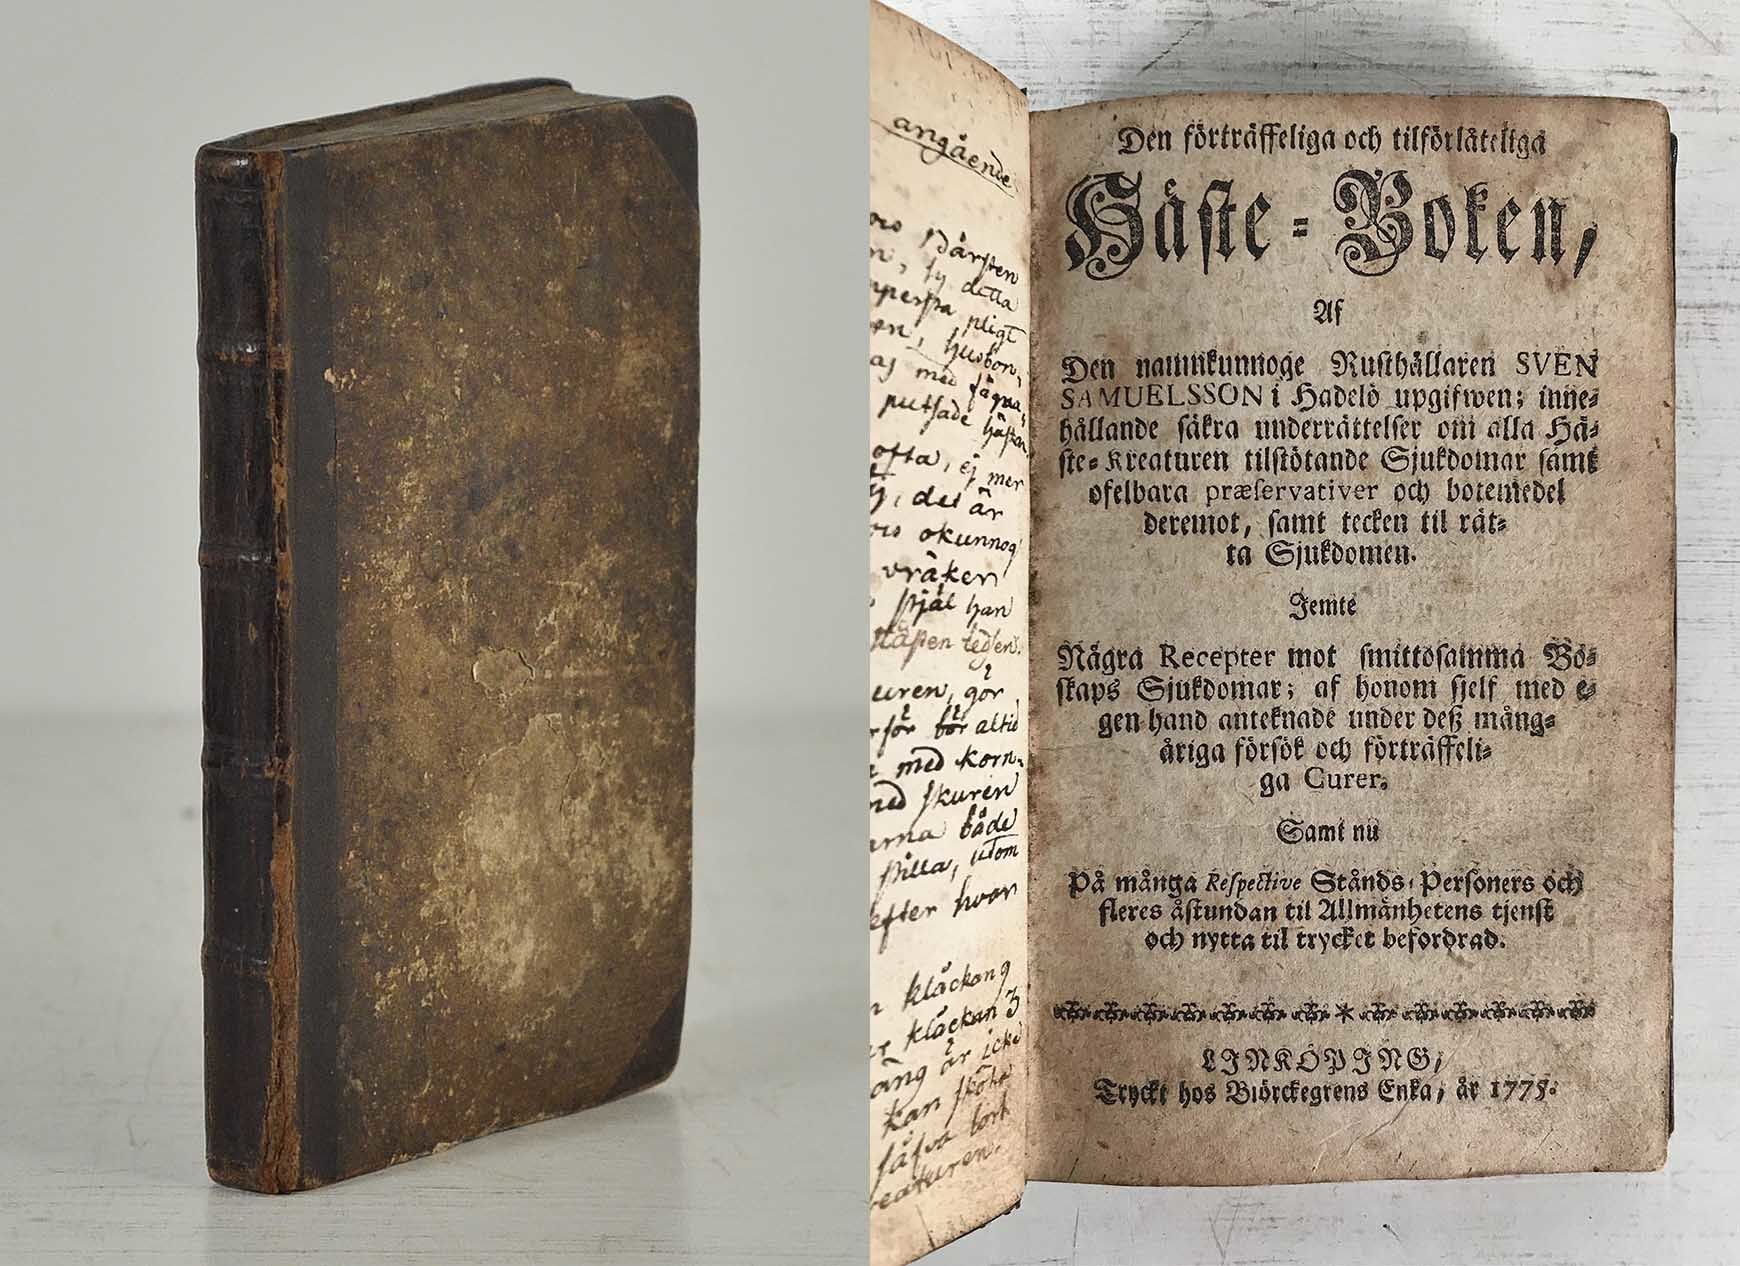 angående
Därsten
, ty detta
pligt
, husbon,
med fägna,
putsade hästar
ofta, ej mer
, det är
okunnog
vräken
själ han
uren, gör
för bör altid
med korn-
med skuren
arna både
stilla, utom
efter hvar
kläckan 9
kläckan 3
är icke
kan sköta
bort
reaturen.
Den förträffeliga och tilförlåteliga
Häste-Boken,
Af
Den namnkunnoge Rusthållaren SVEN
SAMUELSSON i Hadelö upgifwen; inne-
hållande säkra underrättelser om alla Hä-
ste-Kreaturen tilstötande Sjukdomar samt
ofelbara præservativer och botemedel
deremot, samt tecken til rät-
ta Sjukdomen.
Jemte
Några Recepter mot smittosamma Bo-
skaps Sjukdomar; af honom sjelf med e-
gen hand anteknade under deß mång-
åriga försök och förträffeli-
ga Curer.
Samt nu
På många Respective Stånds-Personers och
fleres åstundan til Allmänhetens tjenst
och nytta til trycket befordrad.
LINKÖPING,
Tryckt hos Biörckegrens Enka, år 1775.